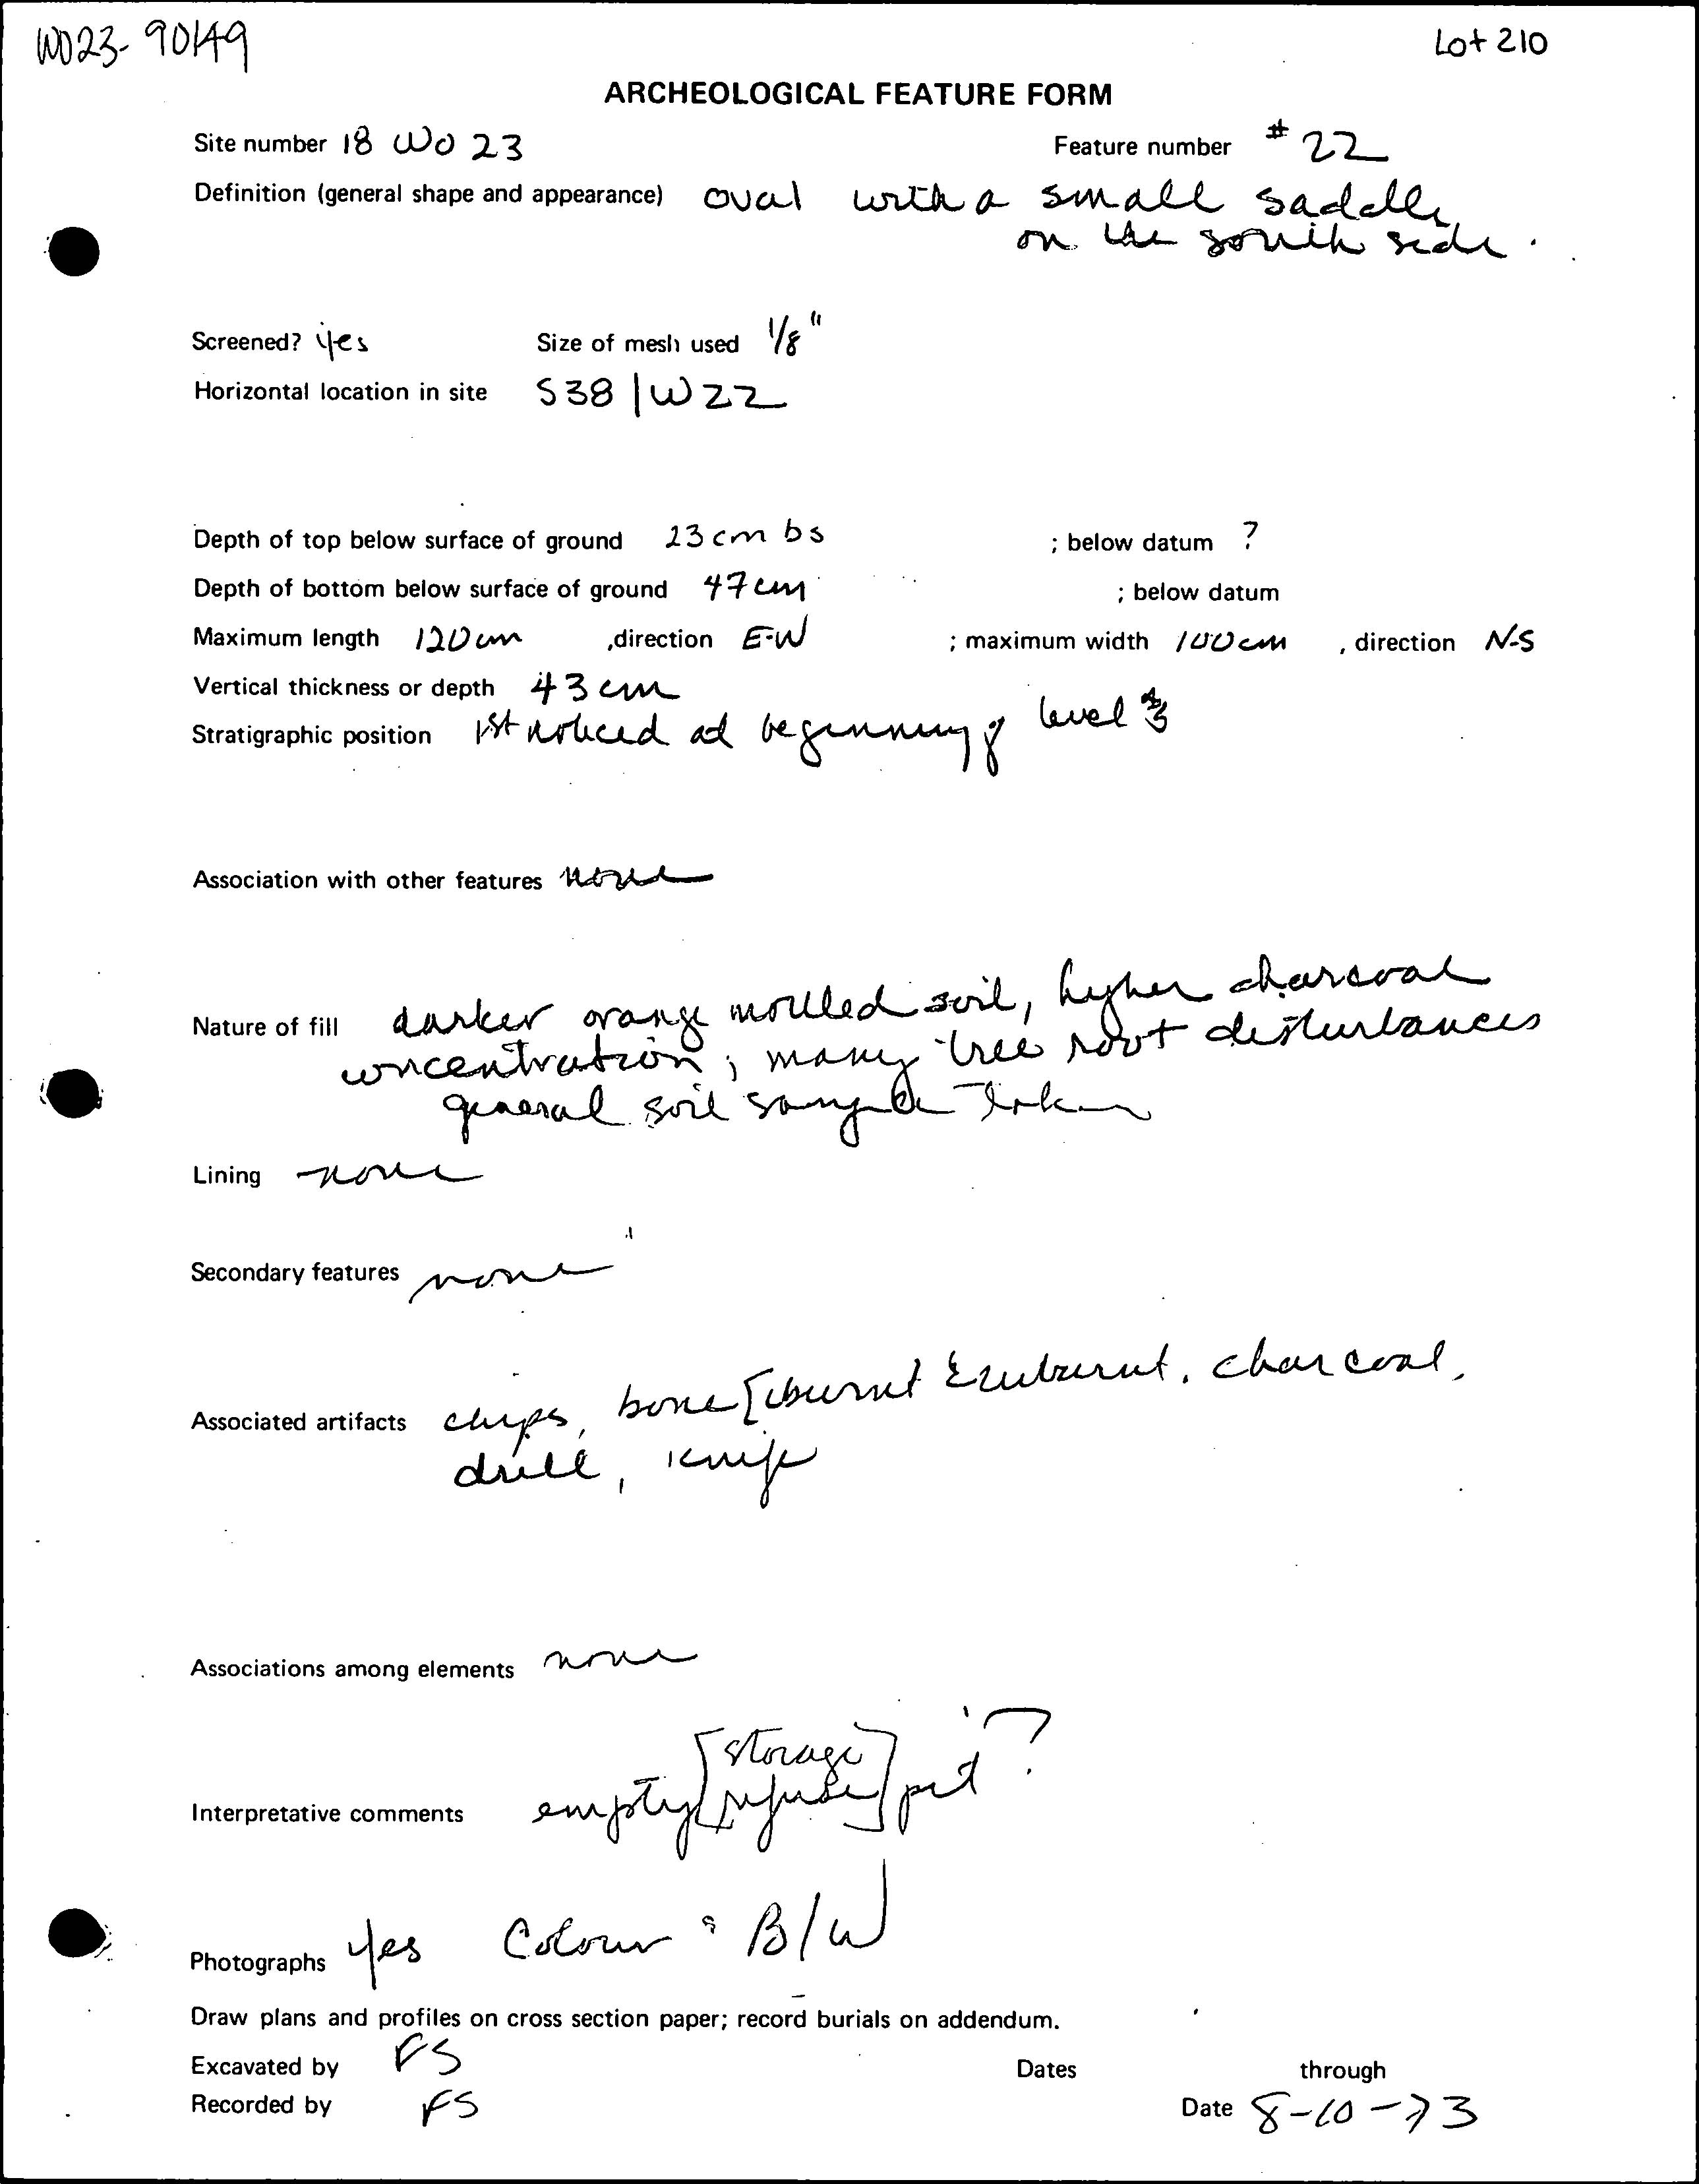 WO23-90149
Lot 210
ARCHEOLOGICAL FEATURE FORM
Site number 18 WO 23 Feature number #22
Definition (general shape and appearance) oval with a small saddle
on the south side.
Screened? yes Size of mesh used 1/8"
Horizontal location in site S38 | W22
Depth of top below surface of ground 23cm bs ; below datum ?
Depth of bottom below surface of ground 47cm ; below datum
Maximum length 120cm , direction E-W ; maximum width 100cm , direction N-S
Vertical thickness or depth 43cm
Stratigraphic position 1st noticed at beginning of level #3
Association with other features none
Nature of fill darker orange mottled soil, higher charcoal
concentration; many tree root disturbances
general soil sample taken
Lining none
Secondary features none
Associated artifacts chips, bone [burnt & unburnt, charcoal,
drill, knife
Associations among elements none
Interpretative comments empty [storage
refuse] pit ?
Photographs yes Colour & B/W
Draw plans and profiles on cross section paper; record burials on addendum.
Excavated by FS Dates through
Recorded by FS Date 8-10-73